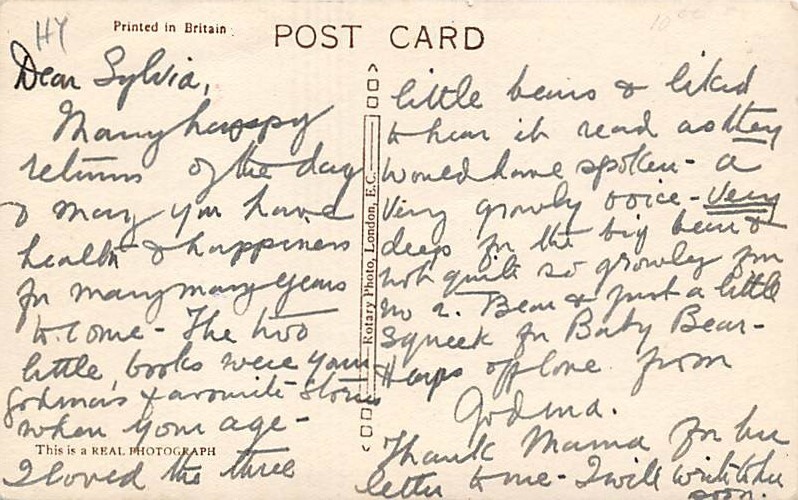 HY
Printed in Britain
POST CARD
Dear Sylvia,
Many happy
returns of the day
& may you have
health & happiness
for many many years
to come - The two
little books were your
Godma's favourite stories
when your age -
This is a REAL PHOTOGRAPH
I loved the three
Rotary Photo, London, E.C.
little bears & liked
to hear it read as they
would have spoken - a
very growly voice - very
deep for the big bear &
not quite so growly for
no 2. Bear & just a little
squeek for Baby Bear -
Heaps of love from
Godma.
Thank Mama for her
letter to me - I will write to her
soon.